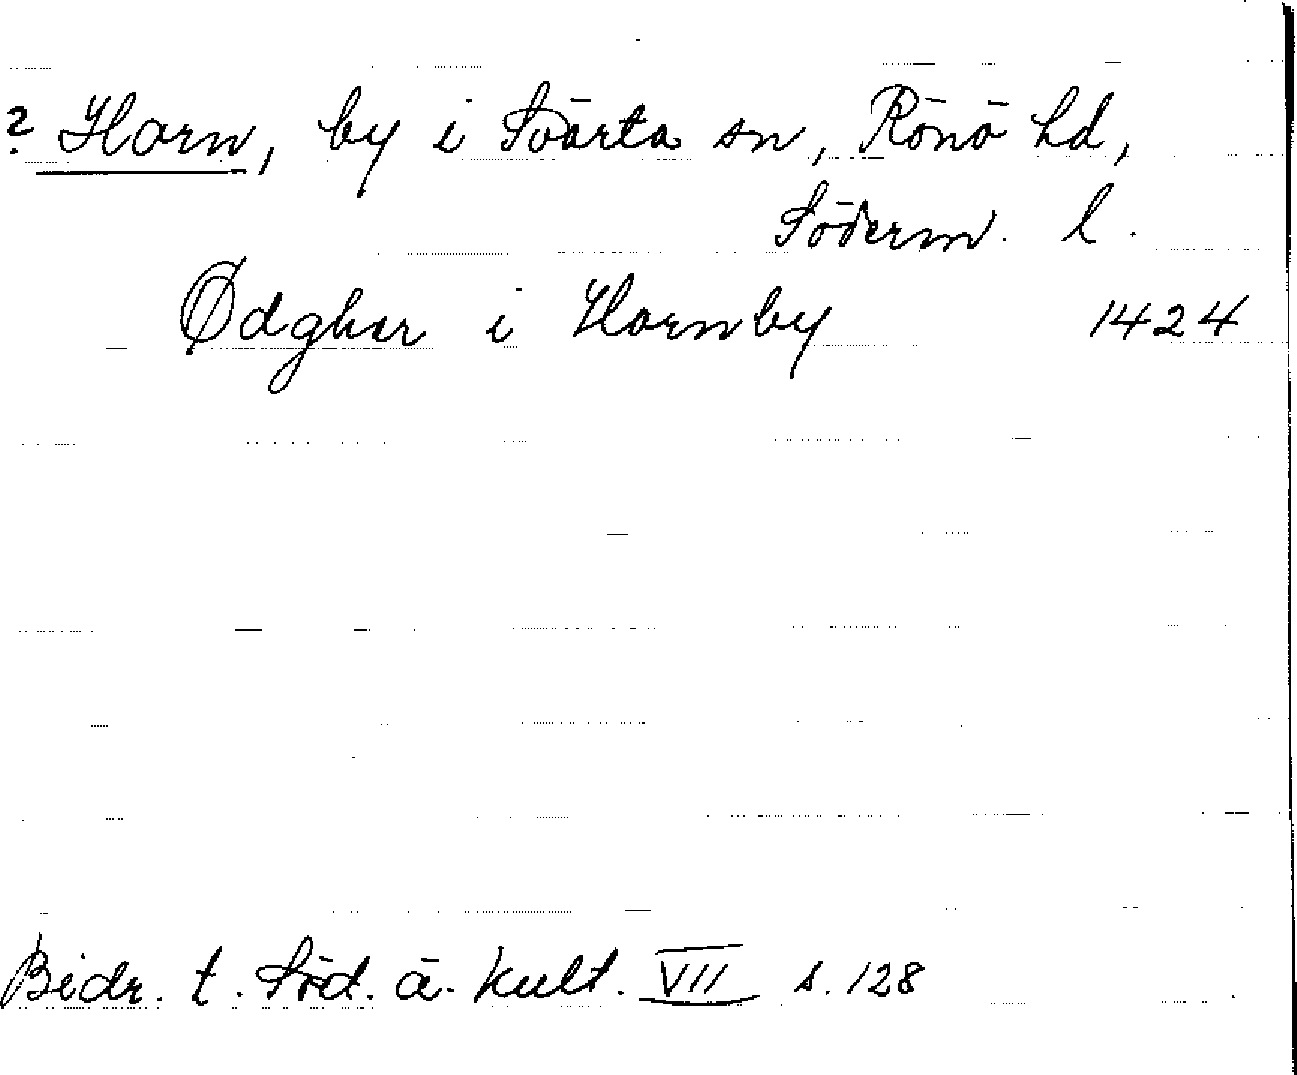 ? Horn, by i Svärta sn, Rönö hd,
Söderm. l.
Ødghar i Hornby 1424
Bidr. t. Söd. ä. kult. VII s. 128